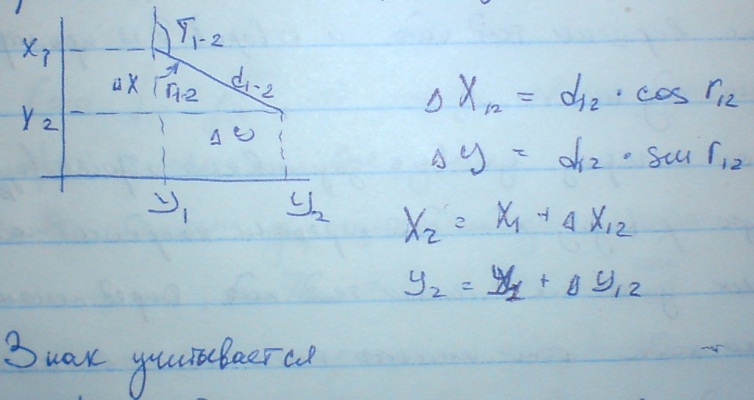 X₁
T₁₋₂
ΔX
r₁₋₂
d₁₋₂
X₂
Δy
y₁
y₂
ΔX₁₂ = d₁₂ · cos r₁₂
Δy = d₁₂ · sin r₁₂
X₂ = X₁ + ΔX₁₂
y₂ = y₁ + Δy₁₂
Знак учитывается